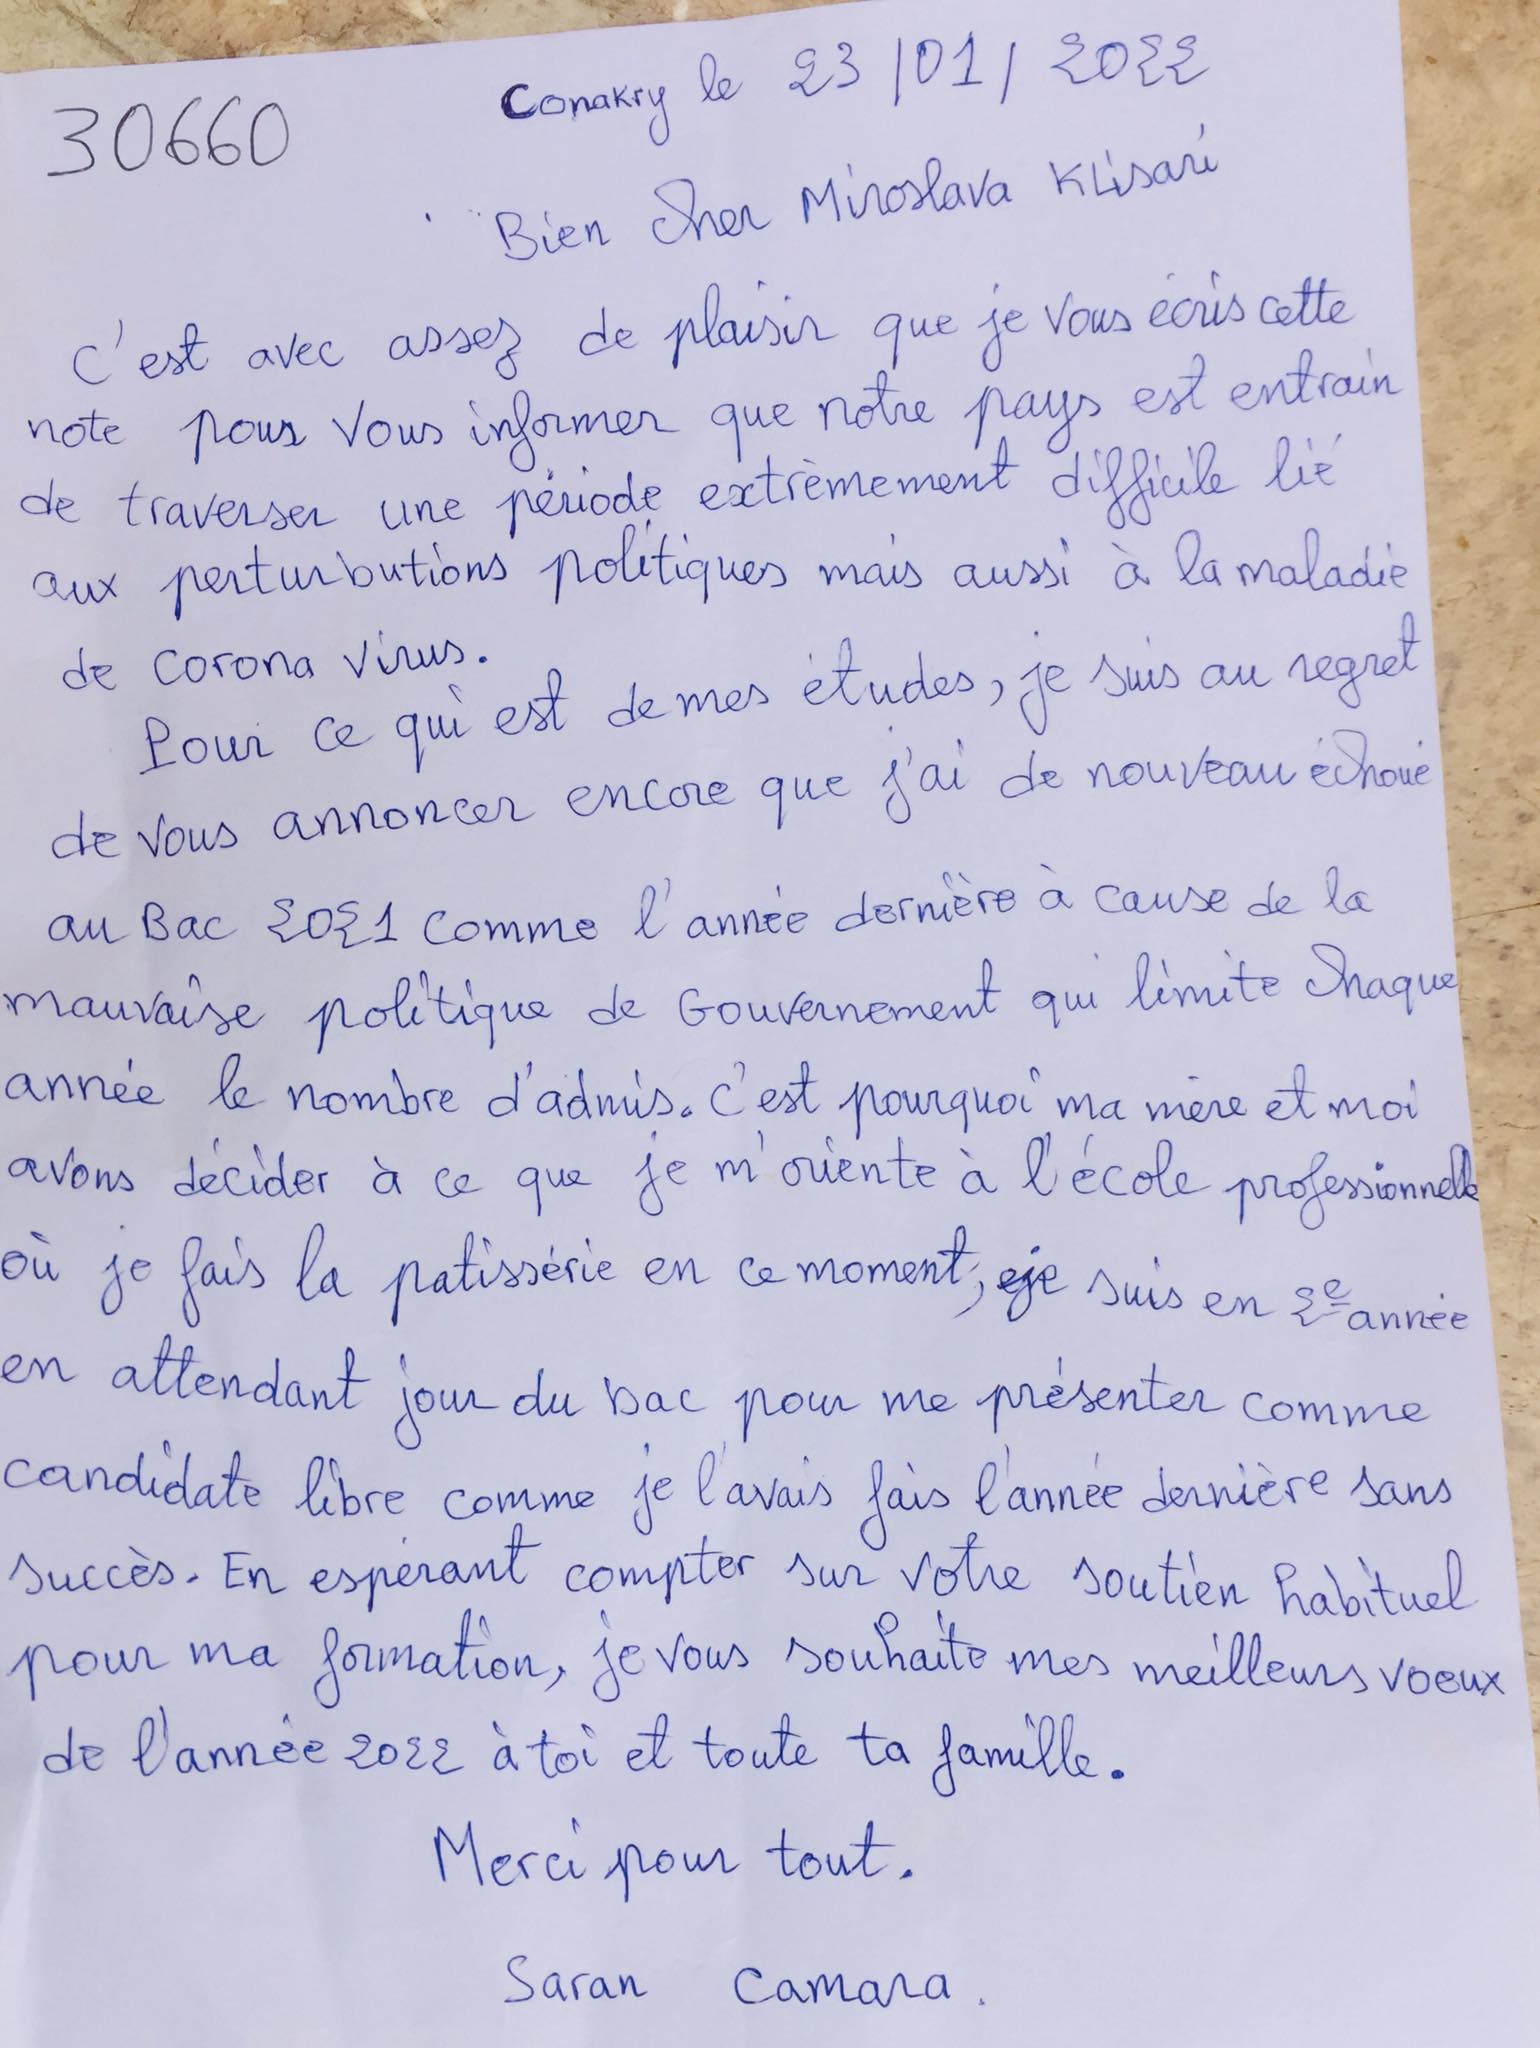 30660
Conakry le 23/01/2022
Bien cher Miroslava Klisari
C'est avec assez de plaisir que je vous écris cette
note pour vous informer que notre pays est entrain
de traverser une période extrèmement difficile lié
aux perturbutions politiques mais aussi à la maladie
de corona virus.
Pour ce qui est de mes études, je suis au regret
de vous annoncer encore que j'ai de nouveau échoué
au Bac 2021 comme l'année dernière à cause de la
mauvaise politique de Gouvernement qui limite chaque
année le nombre d'admis. C'est pourquoi ma mère et moi
avons décider à ce que je m'oriente à l'école professionnelle
où je fais la patissérie en ce moment, je suis en 2e année
en attendant jour du bac pour me présenter comme
candidate libre comme je l'avais fais l'année dernière sans
succès. En espérant compter sur votre soutien habituel
pour ma formation, je vous souhaite mes meilleurs voeux
de l'année 2022 à toi et toute ta famille.
Merci pour tout.
Saran Camara.